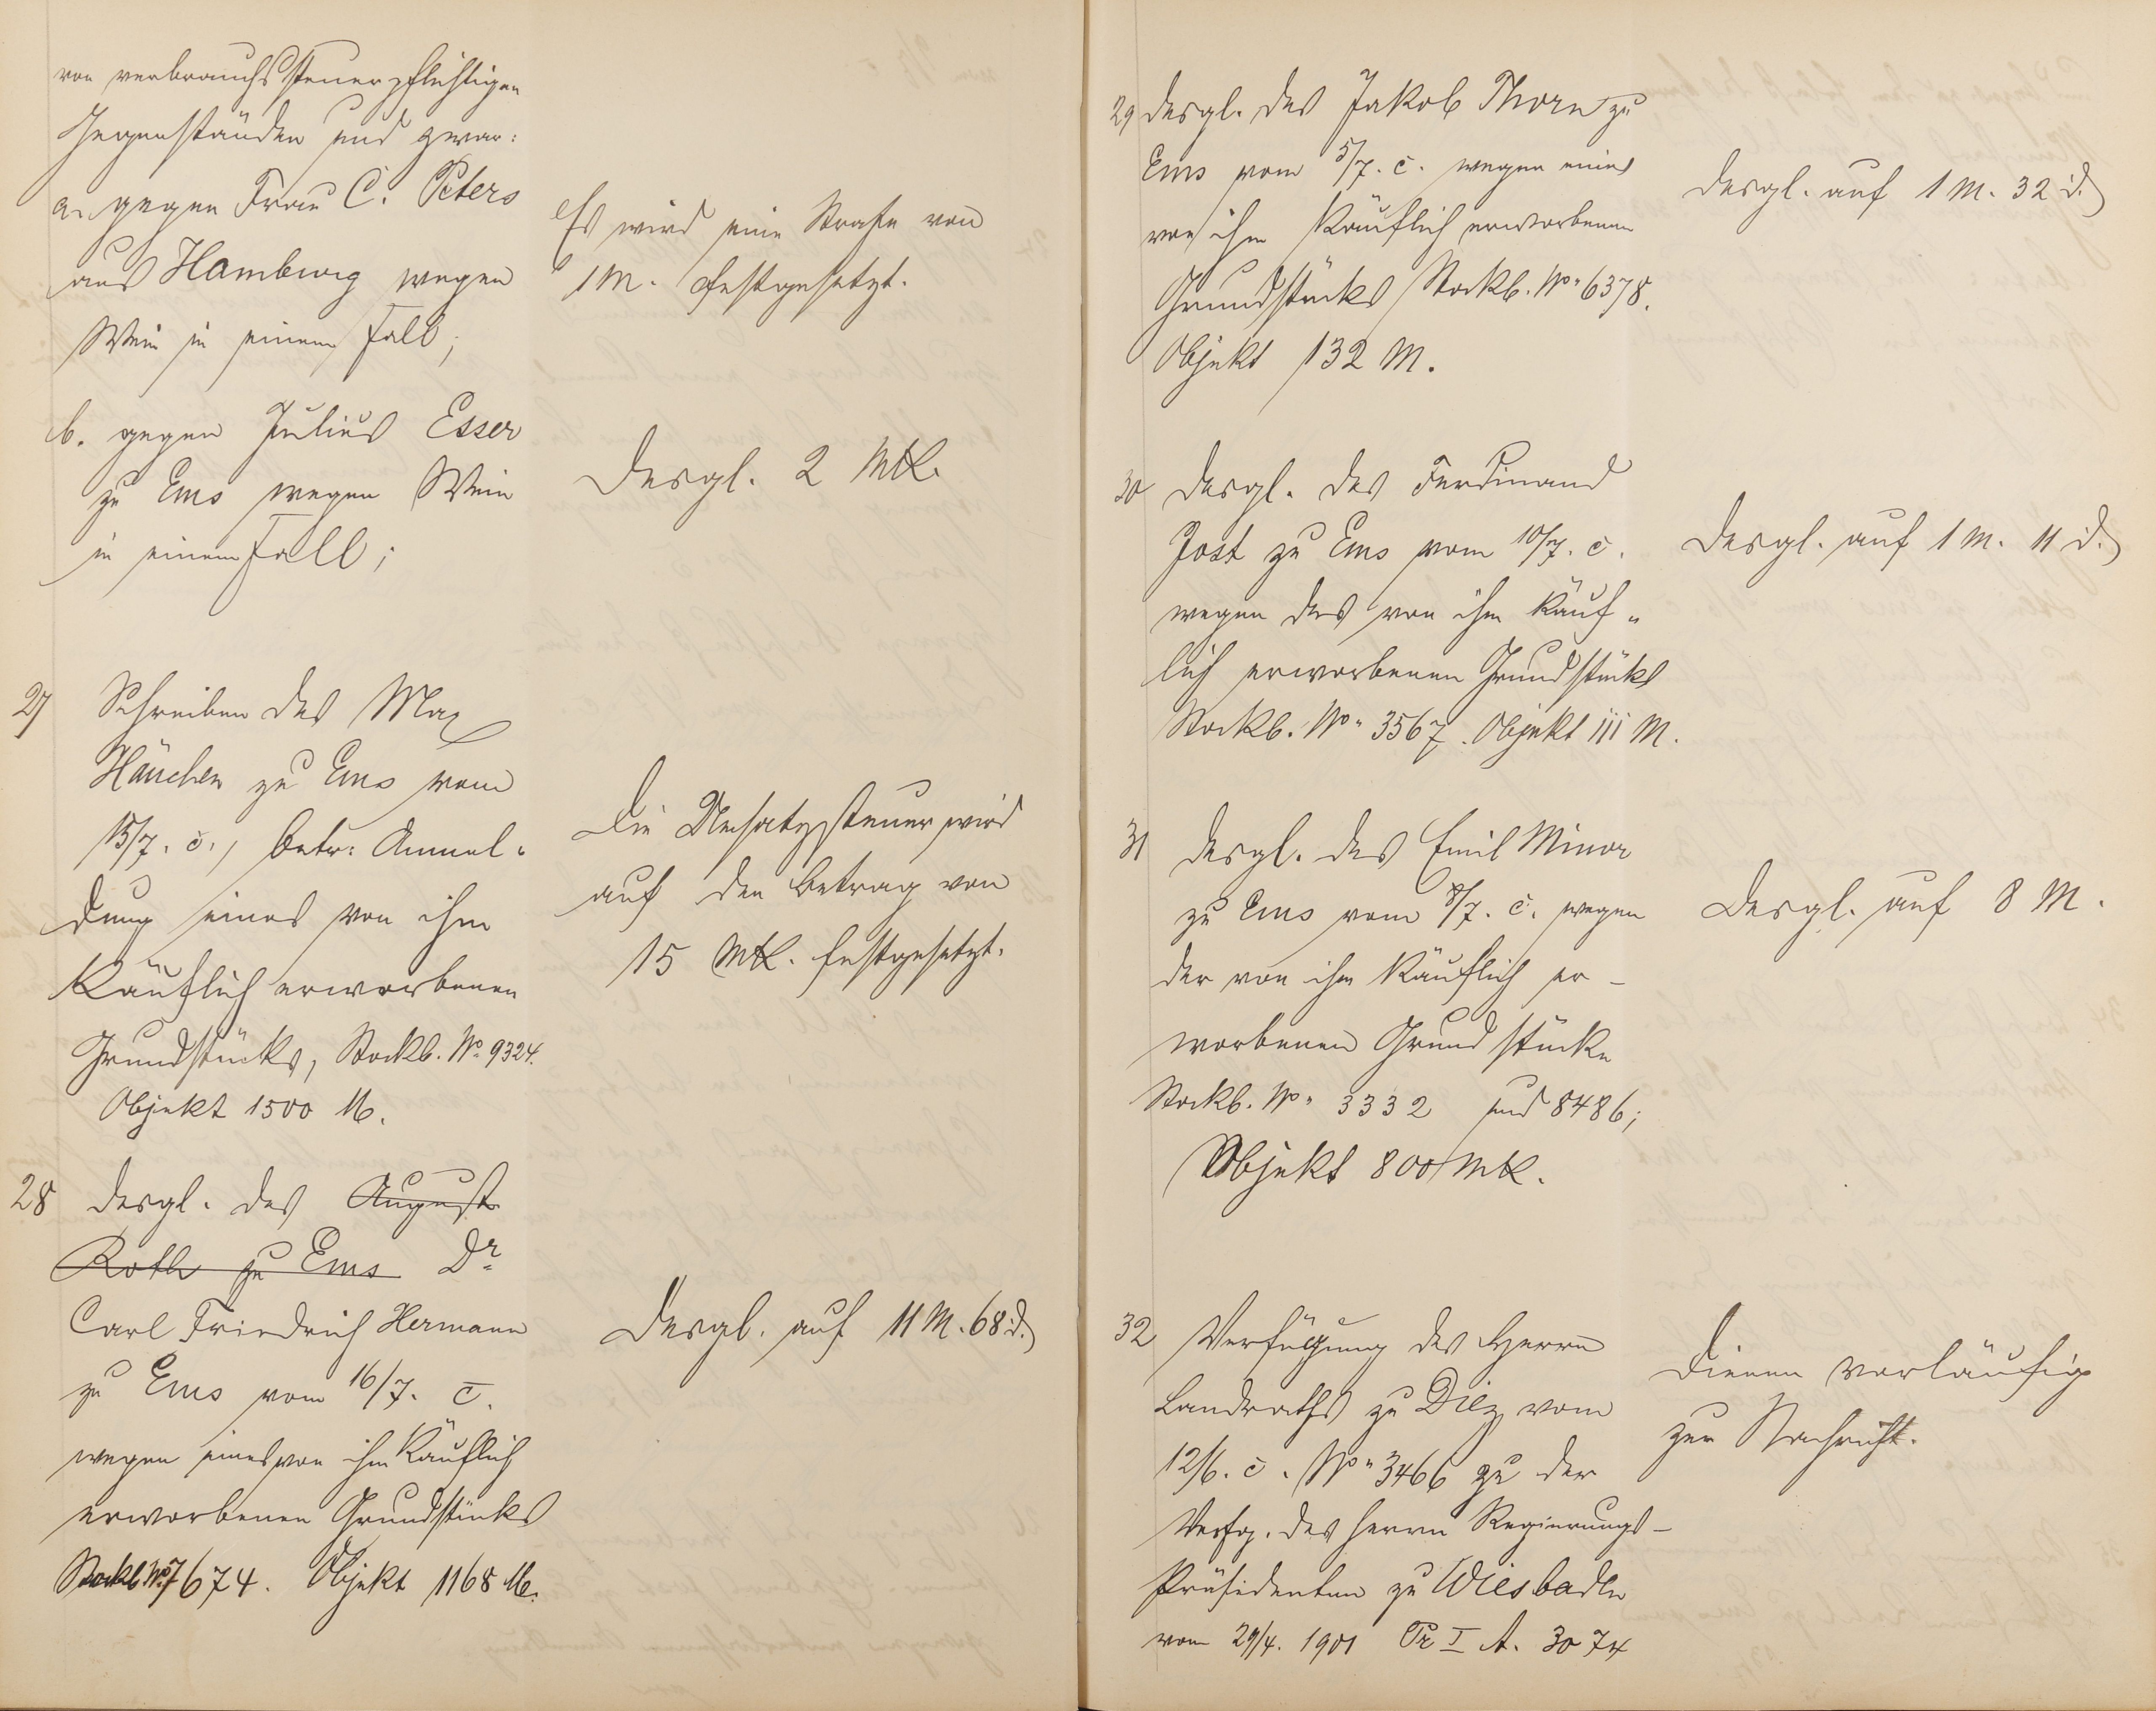 von verbrauchssteuerpflichtigen
Gegenständen und zwar:
a. gegen Frau C. Peters
aus Hamburg wegen
Wein in einem Fall;
Es wird eine Strafe von
1 M. festgesetzt.
b. gegen Julius Esser
zu Ems wegen Wein
in einem Fall;
Desgl. 2 Mk.
27 Schreiben des Max
Häuchen zu Ems vom
15/7. c., betr. Anmel-
dung eines von ihm
käuflich erworbenen
Grundstücks, Stockb. No. 9324.
Objekt 1500 M.
Die Umsatzsteuer wird
auf den Betrag von
15 Mk. festgesetzt.
28 desgl. des August
Roth zu Ems Dr.
Carl Friedrich Hermann
zu Ems vom 16/7. c.
wegen eines von ihm käuflich
erworbenen Grundstücks
Stockb. No. 7674. Objekt 1168 M.
Desgl. auf 11 M. 68 d.
29 desgl. des Jakob Thorn zu
Ems vom 5/7. c. wegen eines
von ihm käuflich erworbenen
Grundstücks Stockb. No. 6378.
Objekt 132 M.
Desgl. auf 1 M. 32 d.
30 desgl. des Ferdinand
Jost zu Ems vom 10/7. c.
wegen des von ihm käuf-
lich erworbenen Grundstücks
Stockb. No. 3567. Objekt 111 M.
Desgl. auf 1 M. 11 d.
31 desgl. des Emil Minor
zu Ems vom 8/7. c. wegen
der von ihm käuflich er-
worbenen Grundstücke
Stockb. No. 3332 und 8486;
Objekt 800 Mk.
Desgl. auf 8 M.
32 Verfügung des Herrn
Landraths zu Diez vom
12/6. c. No. 3466 zu der
Verfg. des Herrn Regierungs-
Präsidenten zu Wiesbaden
vom 29/4. 1901 Pr I A. 3074
Dienen vorläufig
zur Nachricht.